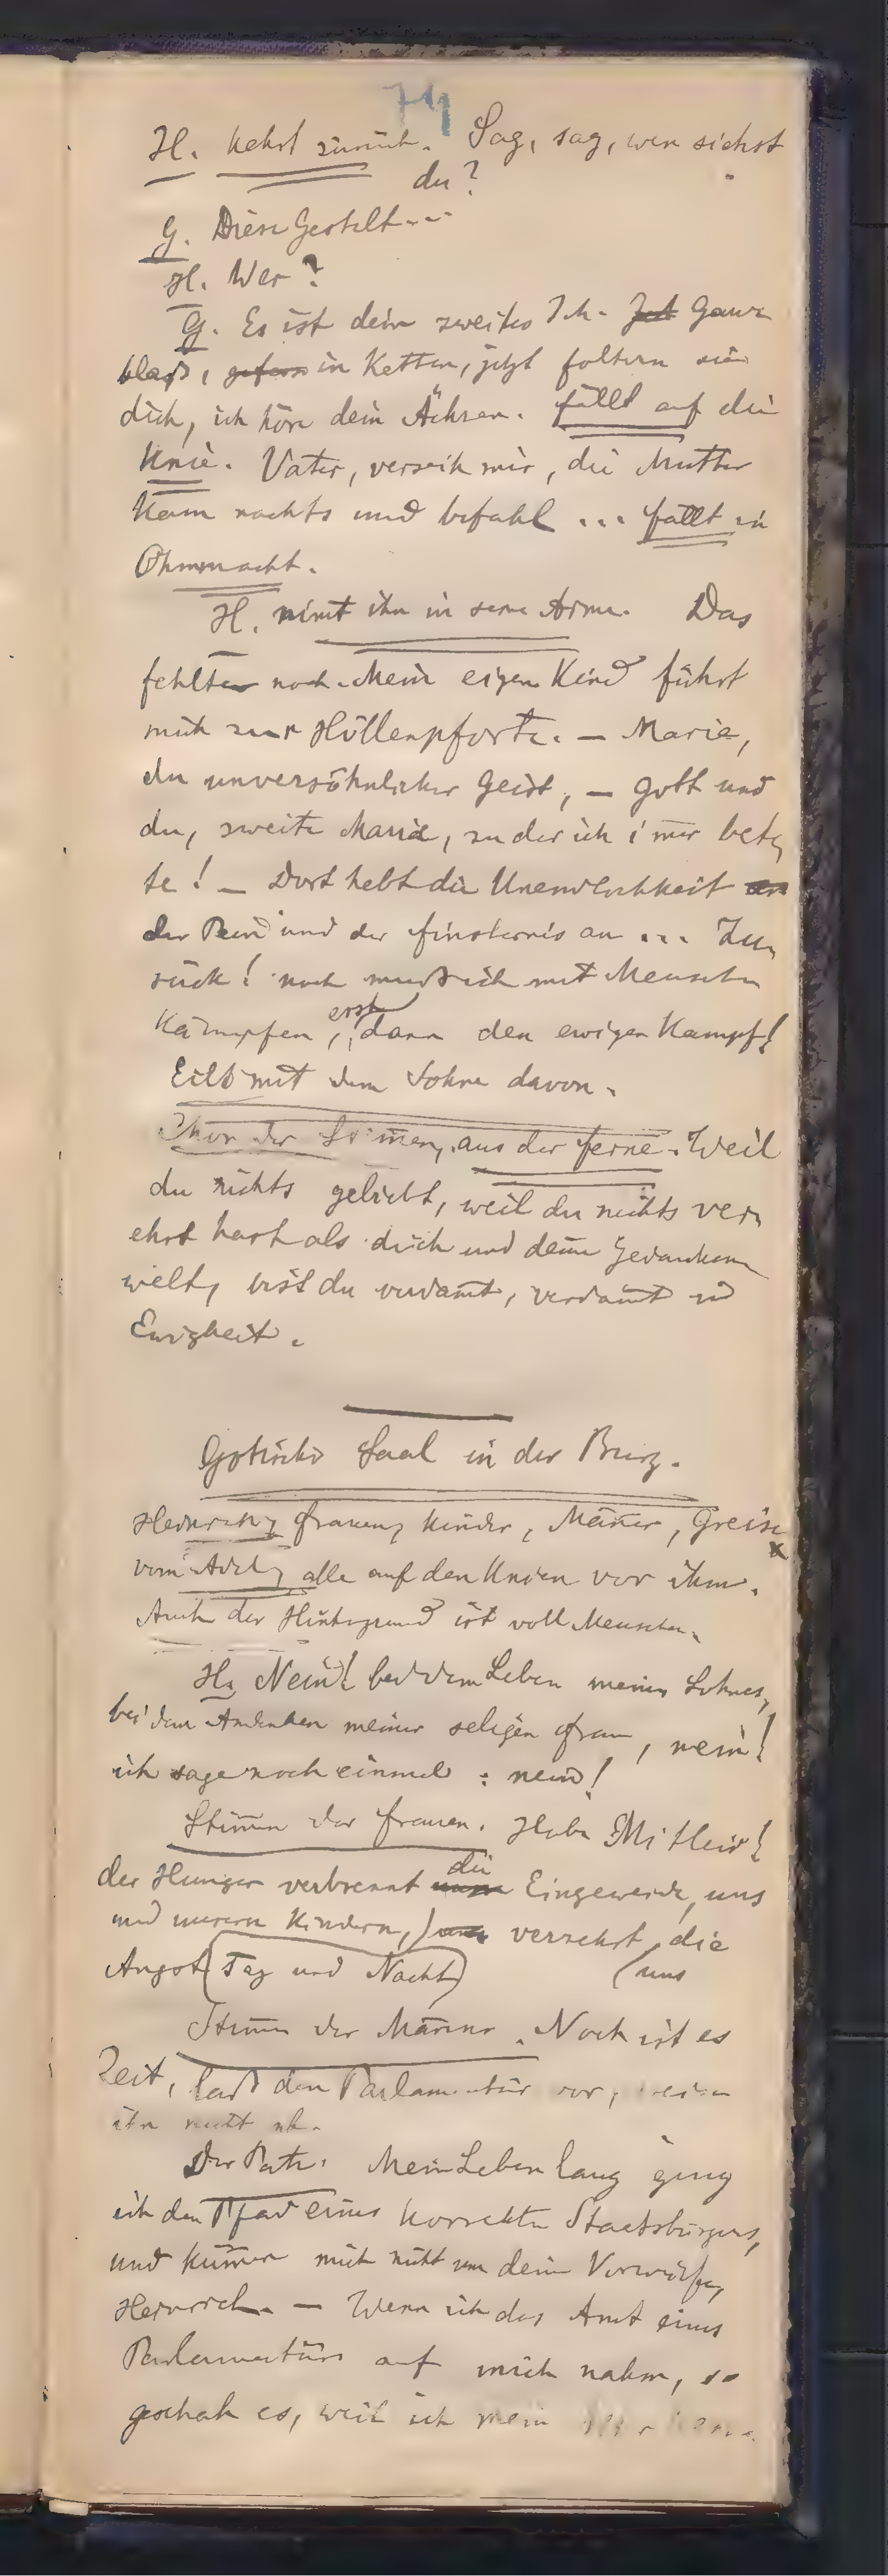 74
H. kehrt zurück. Sag, sag, wen siehst
du?
G. Diese Gestalt---
H. Wer?
G. Es ist dein zweites Ich. Ganz
blaß, in Ketten, jetzt foltern sie
dich, ich höre dein Ächzen. fällt auf die
Knie. Vater, verzeih mir, die Mutter
kam nachts und befahl ... fällt in
Ohnmacht.
H. nimt ihn in seine Arme. Das
fehlte noch. Mein eigen Kind führt
mich zur Höllenpforte. — Marie,
du unversöhnlicher Geist, — Gott und
du, zweite Marie, zu der ich imer bete,
te! — Dort hebt die Unendlichkeit
der Pein und der Finsternis an ... Zu,
rück! noch muß ich mit Menschen
kämpfen, erst dann den ewigen Kampf!
Eilt mit dem Sohne davon.
Chor der Stimen, aus der Ferne. Weil
du nichts geliebt, weil du nichts ver,
ehrt hast als dich und deine Gedanken
welt, bist du verdamt, verdamt in
Ewigkeit.
Gotischer Saal in der Burg.
Heinrich, Frauen, Kinder, Mäner, Greise
vom Adel, alle auf den Knien vor ihm.
Auch der Hintergrund ist voll Menschen.
H. Nein! bei dem Leben meines Sohnes,
bei dem Andenken meiner seligen Frau, nein!
ich sage noch einmal: nein!
Stimen der Frauen. Habe Mitleid!
der Hunger verbrennt die Eingeweide, uns
und unseren Kindern, verzehrt die
Angst Tag und Nacht uns
Stimen der Mäner. Noch ist es
Zeit, laß den Parlamentär vor,
ihn nicht ab.
Der Pate. Mein Leben lang ging
ich den Pfad eines korrekten Staatsbürgers,
und kümere mich nicht um deine Vorwürfe,
Heinrich. — Wenn ich das Amt eines
Parlamentärs auf mich nahm, so
geschah es, weil ich mein